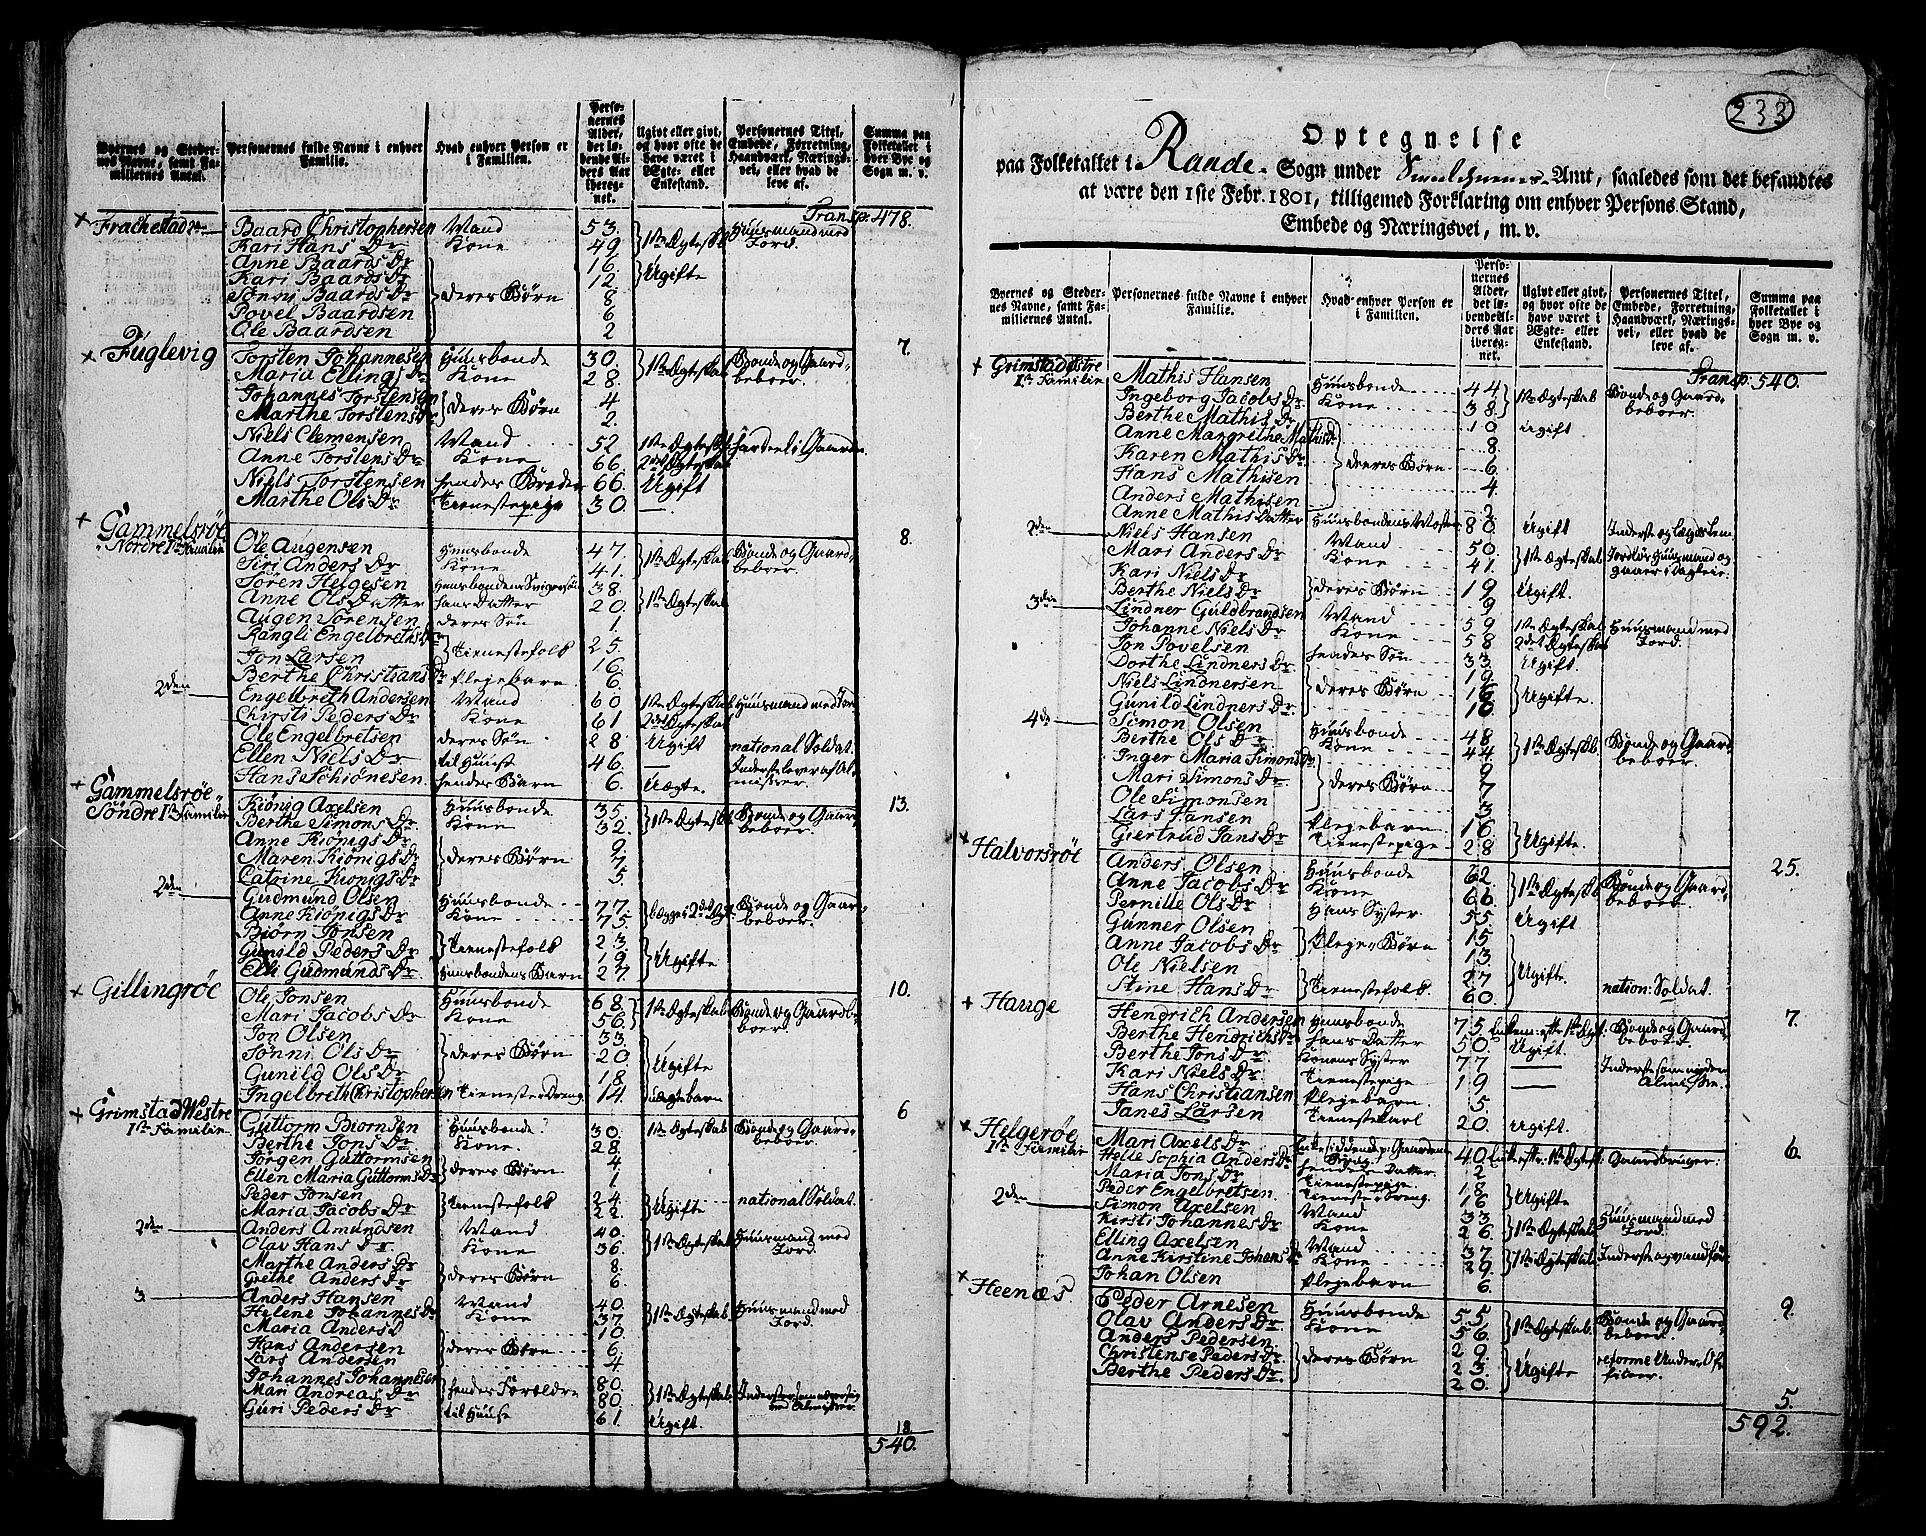 Byernes og Stedernes Navne, samt Familiernes Antal.
Personernes fulde Navne i enhver Familie.
Hvad enhver Person er i Familien.
Personernes Alder, det løbende Alders Aar iberegnet.
Ugivt eller givt, og hvor ofte de have været i Ægte- eller Enkestand.
Personernes Titel, Embede, Forretning, Haandværk, Næringsvei, eller hvad de leve af.
Summa paa Folketallet i hver Bye og Sogn m. v.
Transp: 478.
Baard Christophersen Mand 53. 1ste Ægteskab Huusmand med Jord.
Kari Hans Dr Kone 49
Anne Baards Dr 16. Ugifte
Kari Baards Dr deres Børn 12.
Baards Dr 8
Povel Baardsen 6
Ole Baardsen 2
7.
Fuglevig Torsten Johannesen Huusbonde 30. 1ste Ægteskab Bonde og Gaardbeboer.
Maria Ellings Dr Kone 28.
Johannes Torstensen deres Børn 4
Marthe Torstens Dr 2.
Niels Clemensen Mand 52 1ste Ægteskab
Anne Torstens Dr Kone 66. 2det Ægteskab
Niels Torstensen hendes Broder 66. Ugift
Marthe Ols Dr Tienestepige 30. —
8.
Gammelsröe Nordre 1ste Familie Ole Augensen Huusbonde 47. 1ste Ægteskab Bonde og Gaardbeboer.
Siri Anders Dr Kone 41.
Sören Helgesen Huusbondens Svigersön 38. 1ste Ægteskab
Anne Ols Datter hans Datter 20.
Augen Sörensen deres Søn 1.
Rangli Engelbreths Dr Tienestefolk 25.
Jon Larsen 16
Berthe Christians Dr Plejebarn 6.
2den Engelbreth Andersen Mand 60 1ste Ægteskab Huusmand med Jord
Chirsti Peders Dr Kone 61 2det Ægteskab
Ole Engelbretsen deres Søn 28. Ugift national Soldat.
Ellen Niels Dr til Huuse 46. — Inderste lever af Almisser.
Hans Schiönesen hendes Barn 6. Uægte.
13.
Gammelsröe Söndre 1ste Familie Kiönig Axelsen Huusbonde 35. 1ste Ægteskab Bonde og Gaardbeboer.
Berthe Simons Dr Kone 32.
Anne Kiönigs Dr deres Børn 9.
Maren Kiönigs Dr 7
Catrine Kiönigs Dr 5.
2den Gudmund Olsen Huusbonde 77 begge i 2det Ægt. Bonde og Gaardbeboer.
Anne Kiönigs Dr Kone 75.
Biörn Jonsen Tienestefolk 23. Ugifte
Gunild Peders Dr 19.
Elli Gudmunds Dr Huusbondens Barn 27.
10.
Gillingröe Ole Jonsen Huusbonde 68. 1ste Ægteskab Bonde og Gaardbeboer.
Mari Jacobs Dr Kone 56.
Jon Olsen deres Børn 33. Ugifte
Jönni Ols Dr 20
Gunild Ols Dr 18.
Ingelbreth Christophersen Tieneste Dreng 14. uægtebarn
6
Grimstad Westre 1ste Familie Guttorm Biörnsen Huusbonde 30. 1ste Ægteskab Bonde og Gaardbeboer.
Berthe Jons Dr Kone 28.
Jörgen Guttormsen deres Børn 4
Ellen Maria Guttorms Dr 1
Peder Jonsen Tienestefolk 24. Ugifte national Soldat.
Maria Jacobs Dr 22.
2den Anders Amundsen Mand 40. 1ste Ægteskab Huusmand med Jord.
Olav Hans Dr Kone 36.
Marthe Anders Dr deres Børn 8.
Grethe Anders Dr 6.
3 Anders Hansen Mand 40. 1ste Ægteskab Huusmand med Jord.
Helene Johannes Dr Kone 37.
Maria Anders D 10.
Hans Andersen deres Børn 6.
Lars Andersen 4
Johannes Johannesen hendes Forældre 80. 1ste Ægteskab
Mari Andreas Dr 80.
Guri Peders Dr til Huuse 61. Ugift.
18.
540.
233
Optegnelse
paa Folketallet i Raade Sogn under Amt, saaledes som det befandtes
at være den 1ste Febr. 1801, tilligemed Forklaring om enhver Persons Stand,
Embede og Næringsvei, m. v.
Byernes og Stedernes Navne, samt Familiernes Antal.
Personernes fulde Navne i enhver Familie.
Hvad enhver Person er i Familien.
Personernes Alder, det løbende Alders Aar iberegnet.
Ugivt eller givt, og hvor ofte de have været i Ægte- eller Enkestand.
Personernes Titel, Embede, Forretning, Haandværk, Næringsvei, eller hvad de leve af.
Summa paa Folketallet i hver Bye og Sogn m. v.
Transp. 540.
Grimstad Østre 1ste Familie Mathis Hansen Huusbonde 44 1ste Ægteskab Bonde og Gaardbeboer.
Ingeborg Jacobs Dr Kone 38
Berthe Mathis Dr 10 ugift
Anne Margrethe Mathisdr 8
Karen Mathis Dr deres Børn 6
Hans Mathisen 4
Anders Mathisen 2
Anne Mathis Datter Huusbondens Moster 80. Ugift
2den Niels Hansen Mand 50. 1ste Ægteskab
Mari Anders Dr Kone 41.
Kari Niels Dr deres Børn 19 Ugift.
Berthe Niels Dr 9
3die Lindner Guldbrandsen Mand 59 1ste Ægteskab Huusmand med Jord.
Johanne Niels Dr Kone 58 2det Ægteskab
Jon Povelsen hendes Søn 33 Ugift.
Dorthe Lindners Dr deres Børn 19 Ugifte.
Niels Lindnersen 16
Gunild Lindners Dr 10
4de Simon Olsen Huusbonde 48 1ste Ægteskab Bonde og Gaardbeboer.
Berthe Ols Dr Kone 44
Inger Maria Simons Dr deres Børn 9
Mari Simons Dr 7
Ole Simonsen 3
Lars Jansen Plejebarn 16 Ugifte.
Giertrud Jans Dr Tienestepige 28
25.
Halvorsröe Anders Olsen Huusbonde 62. 1ste Ægteskab Bonde og Gaardbeboer.
Anne Jacobs Dr Kone 66
Pernille Ols Dr Hans Syster 55 Ugift
Gunner Olsen Pleje Børn 15 Ugifte
Anne Jacobs Dr 13.
Ole Nielsen Tienestefolk 27 nation: Soldat.
Stine Hans Dr 60.
7.
Hauge Hendrich Andersen Huusbonde 75 Bonde og Gaardbeboer.
Berthe Hendrichs Dr hans Datter 50 Ugift.
Berthe Jons Dr Konens Syster 77 —
Kari Niels Dr Tienestepige 19 —
Hans Christiansen Plejebarn 5.
Janes Larsen Tienestekarl 20. ugift.
6.
Helgeröe 1ste Familie Mari Axels Dr 40 Gaardbruger:
Helle Sophia Anders Dr hendes Datter 2
Maria Jons Dr Tienestepige 18 Ugifte
Peder Engelbretsen Tieneste Dreng 16
2den Simon Axelsen Mand 33 1ste Ægteskab Huusmand med Jord.
Kirsti Johannes Dr Kone 26
Elling Axelsen Mand 37 1ste Ægteskab
Anne Kirstine Johens Dr Kone 29
Johan Olsen Plejebarn 6.
9.
Heenæs Peder Arnesen Huusbonde 55 1ste Ægteskab Bonde og Gaardbeboer.
Olav Anders Dr Kone 56.
Anders Pedersen deres Børn 29. Ugifte
Christense Peders Dr 23.
Berthe Peders Dr 20.
5.
592.